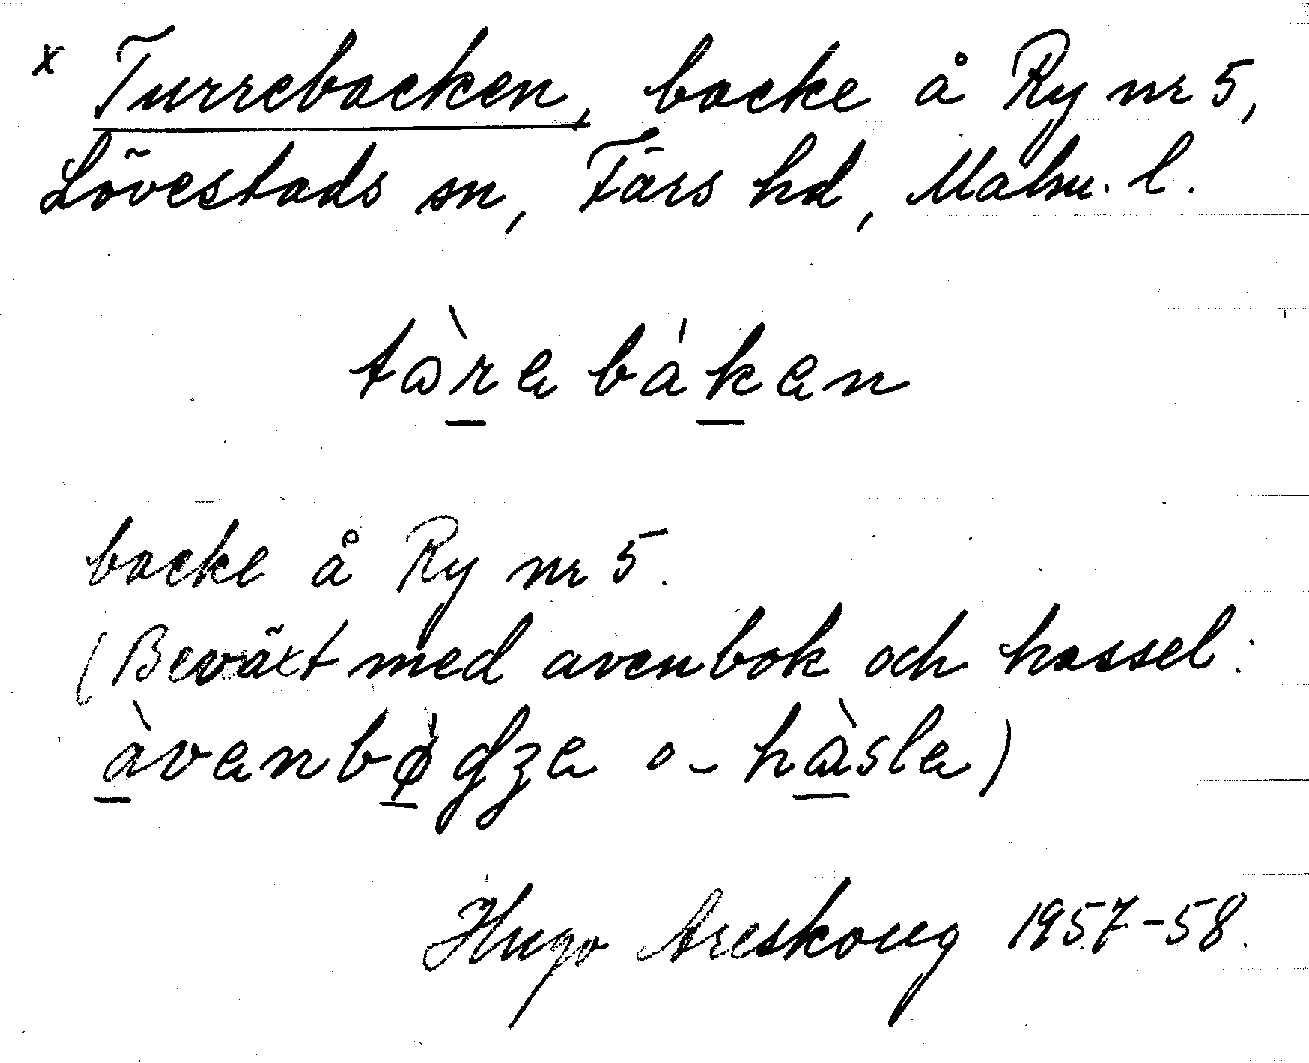 x Turrebacken, backe å Ry nr 5,
Lövestads sn, Färs hd, Malm. l.
tàrebáken
backe å Ry nr 5.
(Beväxt med avenbok och hassel:
àvenbø̀gze o- hàsle)
Hugo Areskoug 1957-58.